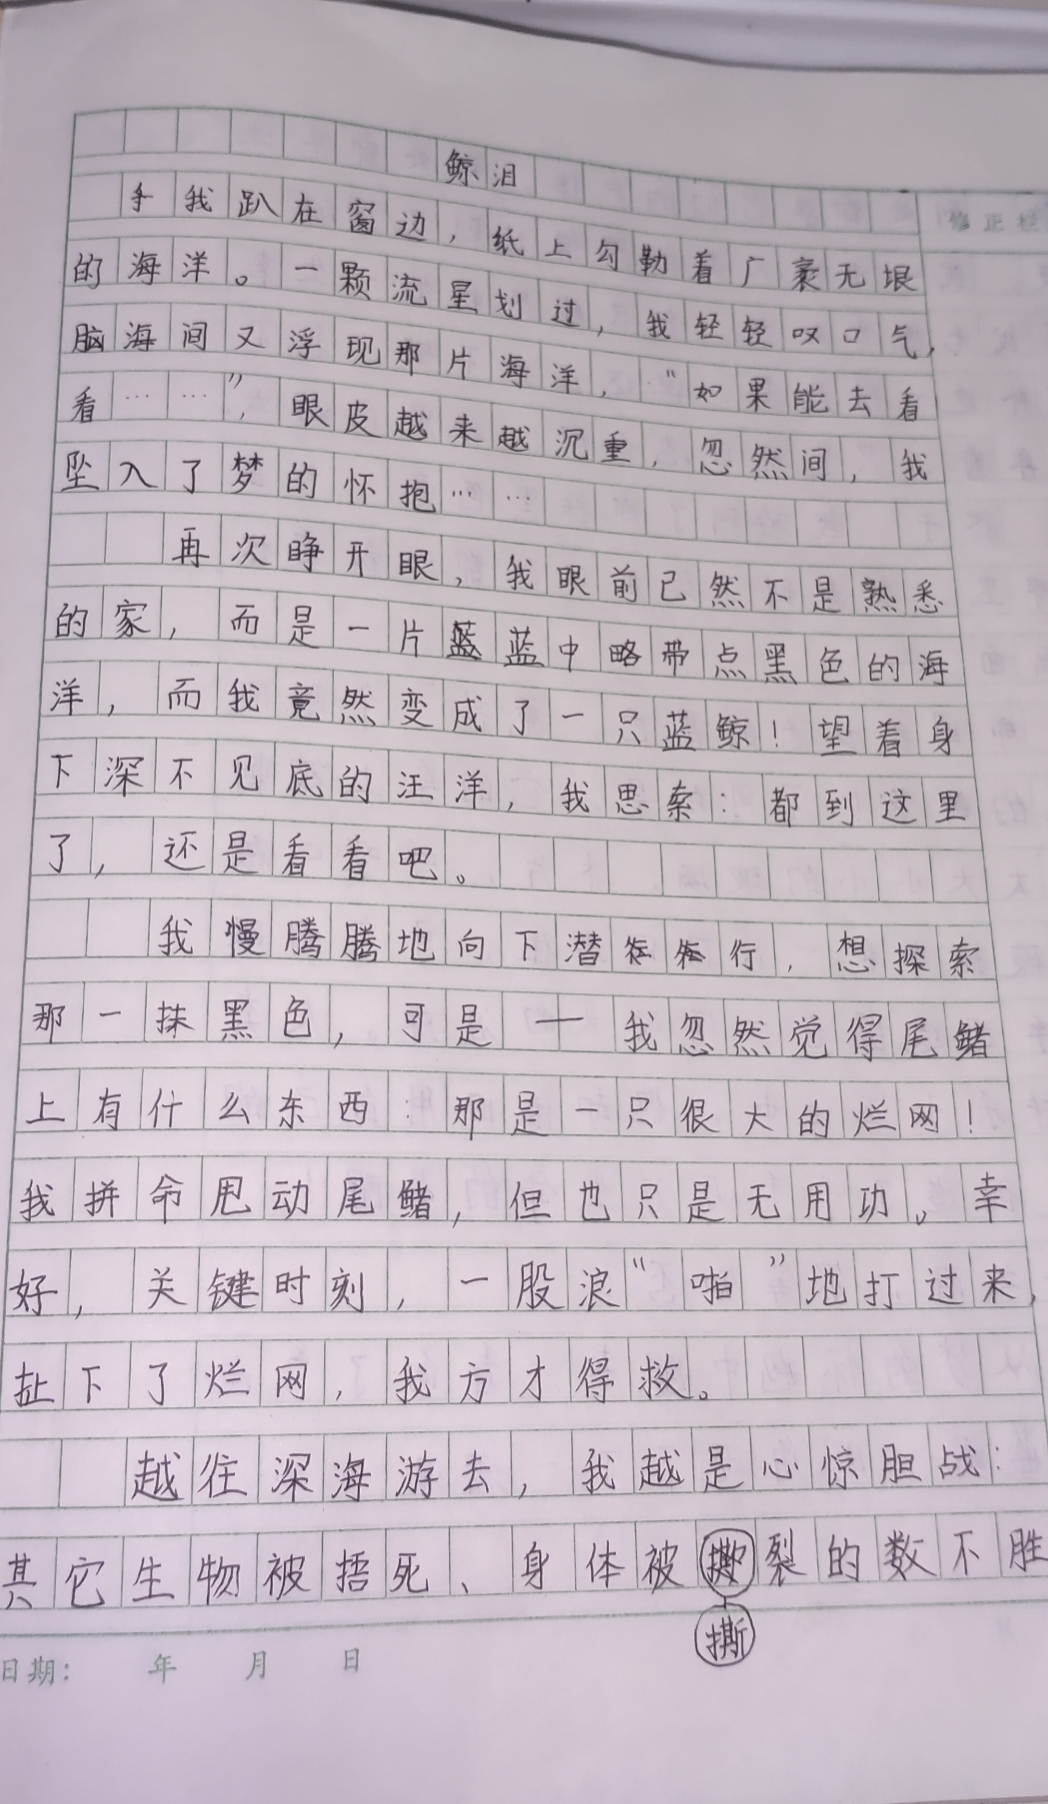 鲸泪
我趴在窗边，纸上勾勒着广袤无垠
的海洋。一颗流星划过，我轻轻叹口气，
脑海间又浮现那片海洋，“如果能去看
看……”，眼皮越来越沉重，忽然间，我
坠入了梦的怀抱……
再次睁开眼，我眼前已然不是熟悉
的家，而是一片蓝蓝中略带点黑色的海
洋，而我竟然变成了一只蓝鲸！望着身
下深不见底的汪洋，我思索：都到这里
了，还是看看吧。
我慢腾腾地向下潜行，想探索
那一抹黑色，可是——我忽然觉得尾鳍
上有什么东西：那是一只很大的烂网！
我拼命甩动尾鳍，但也只是无用功。幸
好，关键时刻，一股浪“啪”地打过来，
扯下了烂网，我方才得救。
越往深海游去，我越是心惊胆战：
其它生物被捂死、身体被撕裂的数不胜
日期： 年 月 日
修正栏